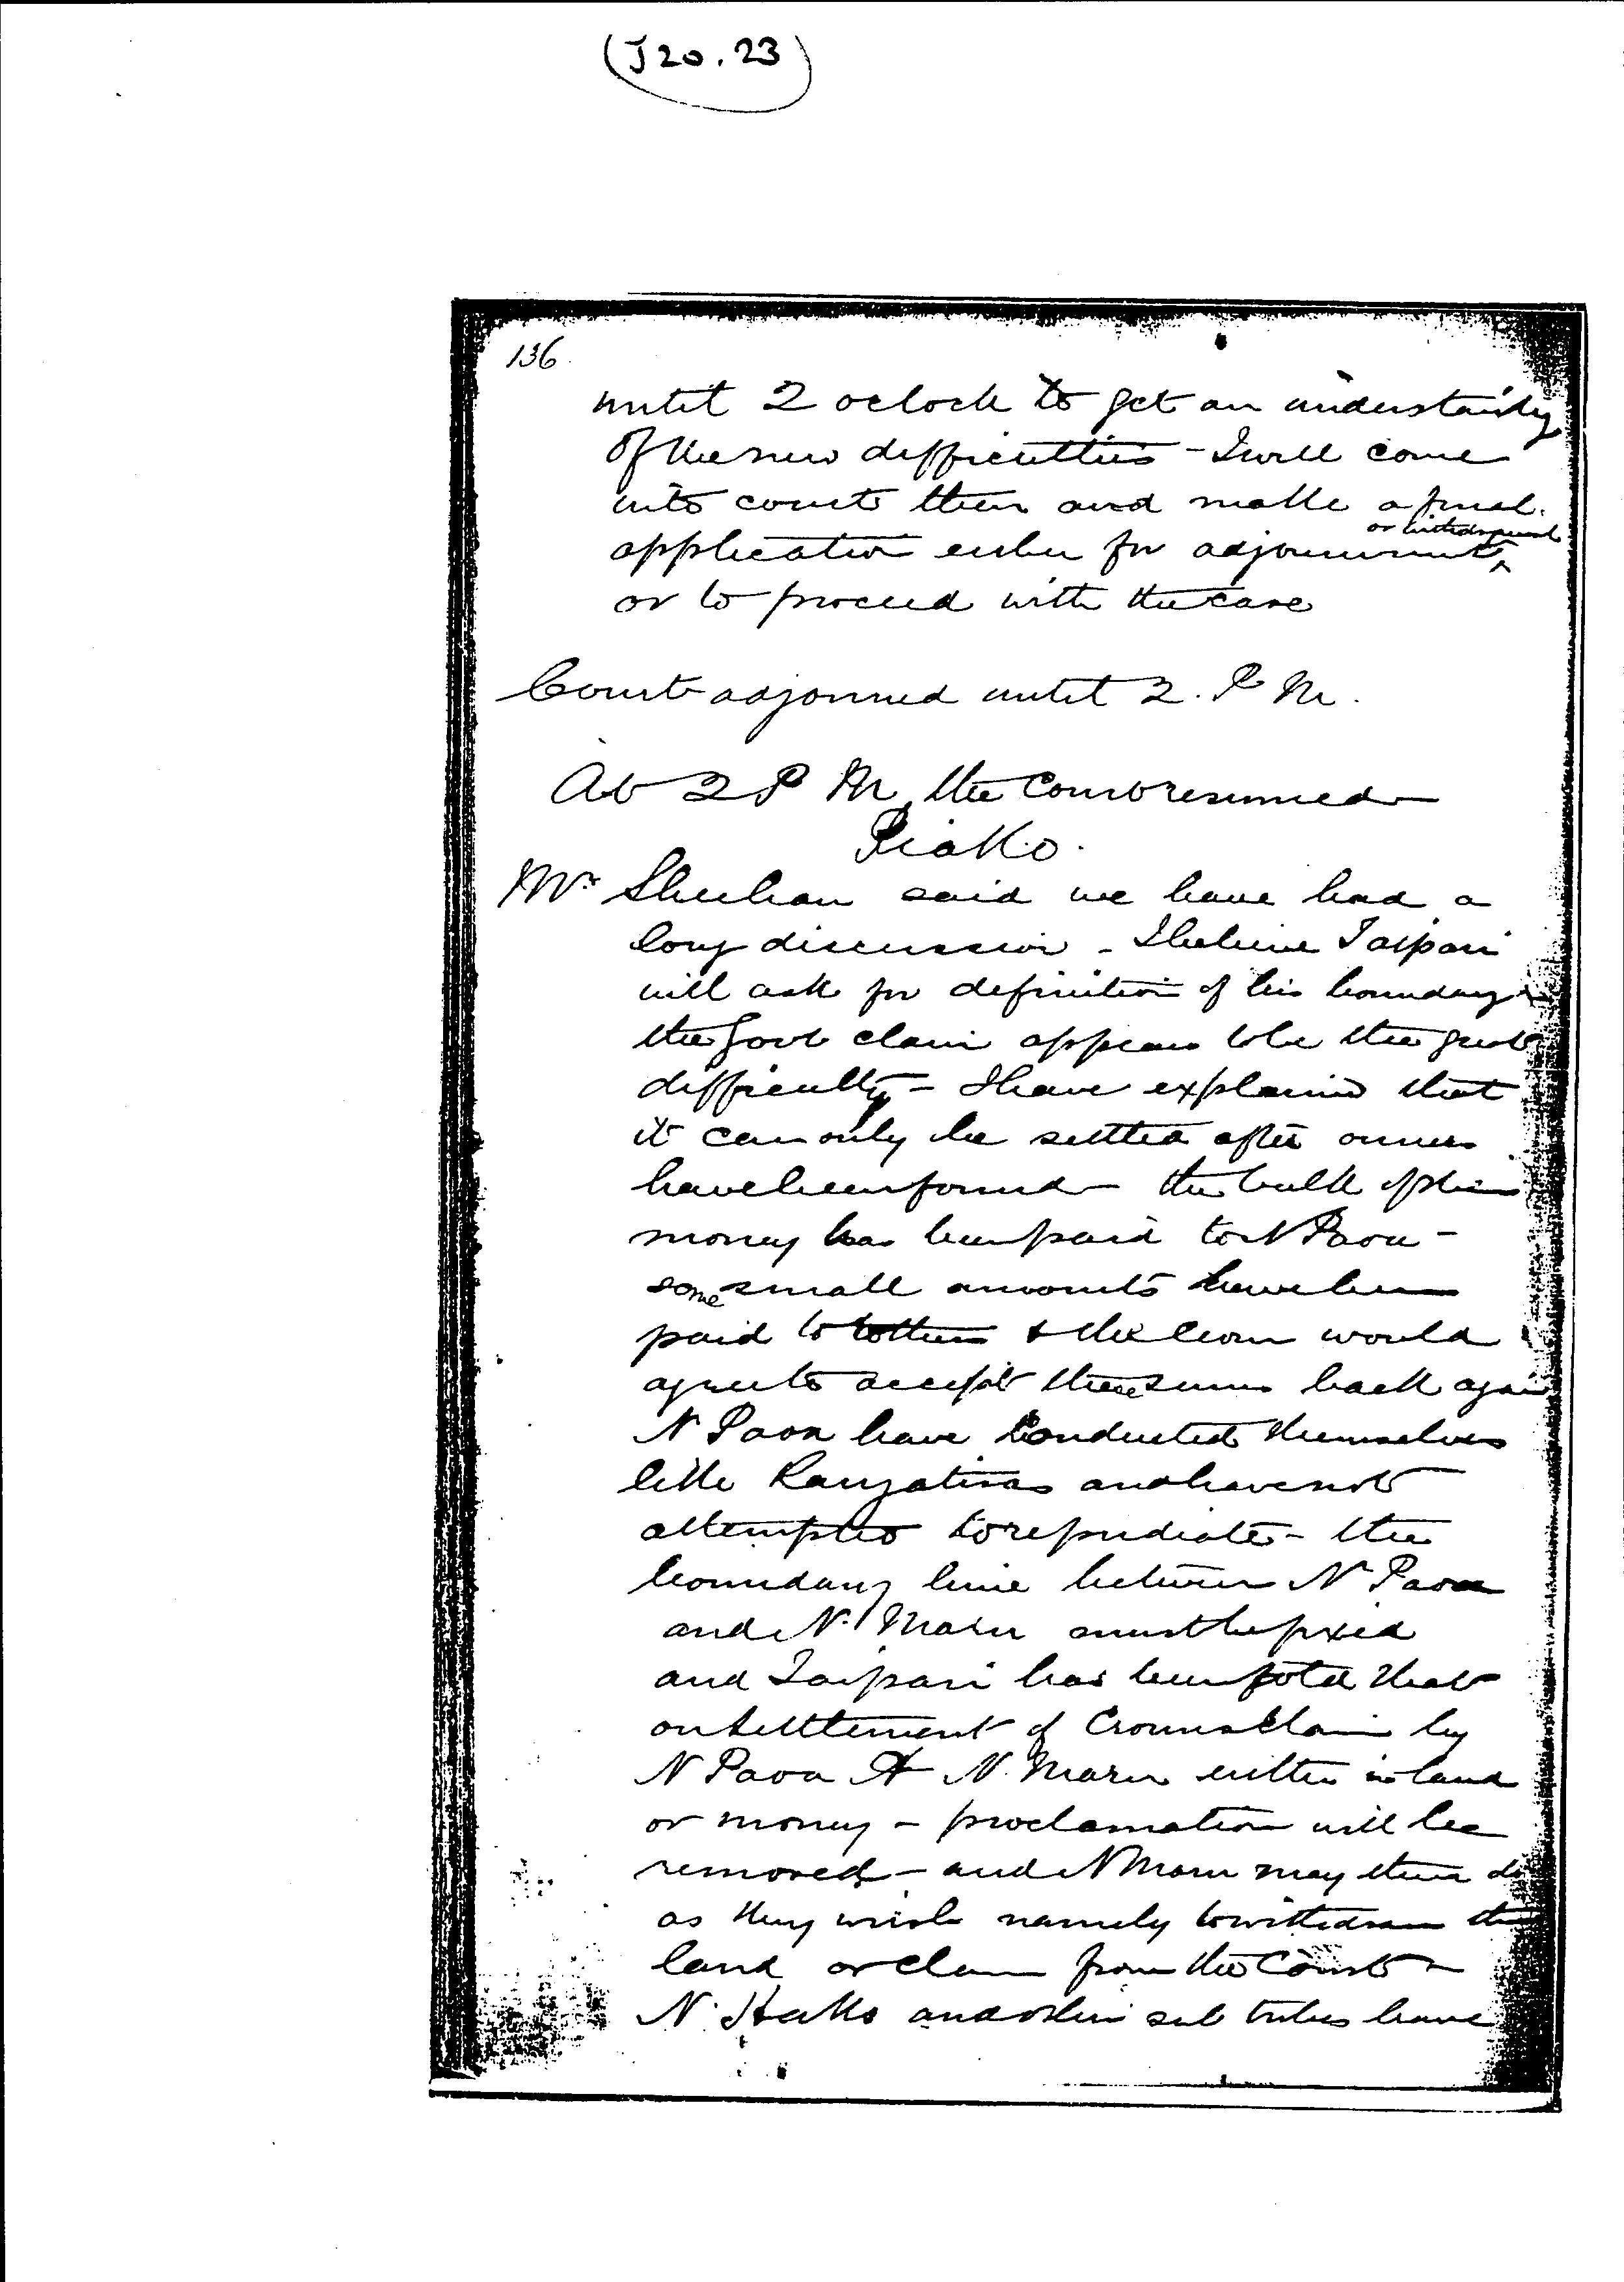 (J20.23)
136.
until 2 oclock to get an understanding
of the new difficulties - I will come
into court then and make a final
or withdrawal
application either for adjournment
or to proceed with the case
Court adjourned until 2. P M.
At 2 P M, the Court resumed
Piako.
Mr Sheehan said we have had a
long discussion - I believe Taipari
will ask for definition of his boundary
the Govt claim appears to be the great
difficulty - I have explained that
it can only be settled after owners
have been found - the bulk of the
money has been paid to N Paoa -
some small amounts have been
paid to others & the Crown would
agree to accept these sums back again
N Paoa have conducted themselves
like Rangatiras and have not
attempted to repudiate - the
boundary line between N Paoa
and N. Maru must be fixed
and Taipari has been told that
on settlement of Crowns claim by
N Paoa & N. Maru either in land
or money - proclamation will be
removed - and N Maru may then do
as they wish namely to withdraw the
land or claim from the Court -
N. Hako and other sub tribes have